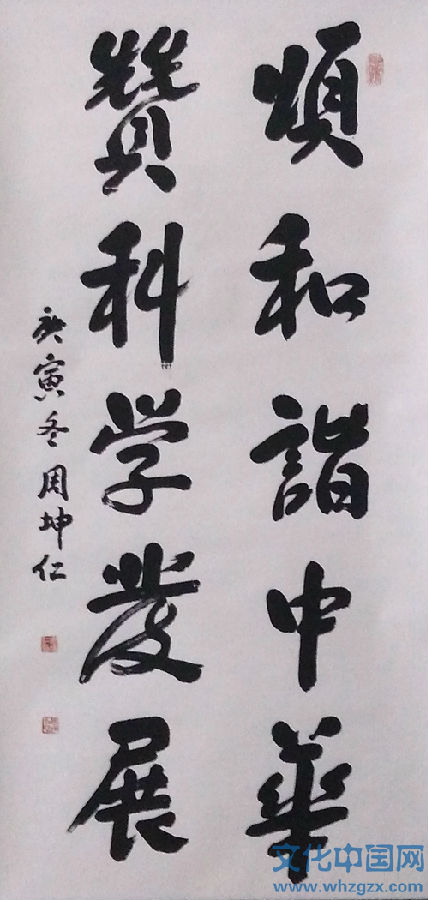 頌和諧中華
贊科学發展
庚寅冬周坤仁
文化中国网
www.whzgzx.com